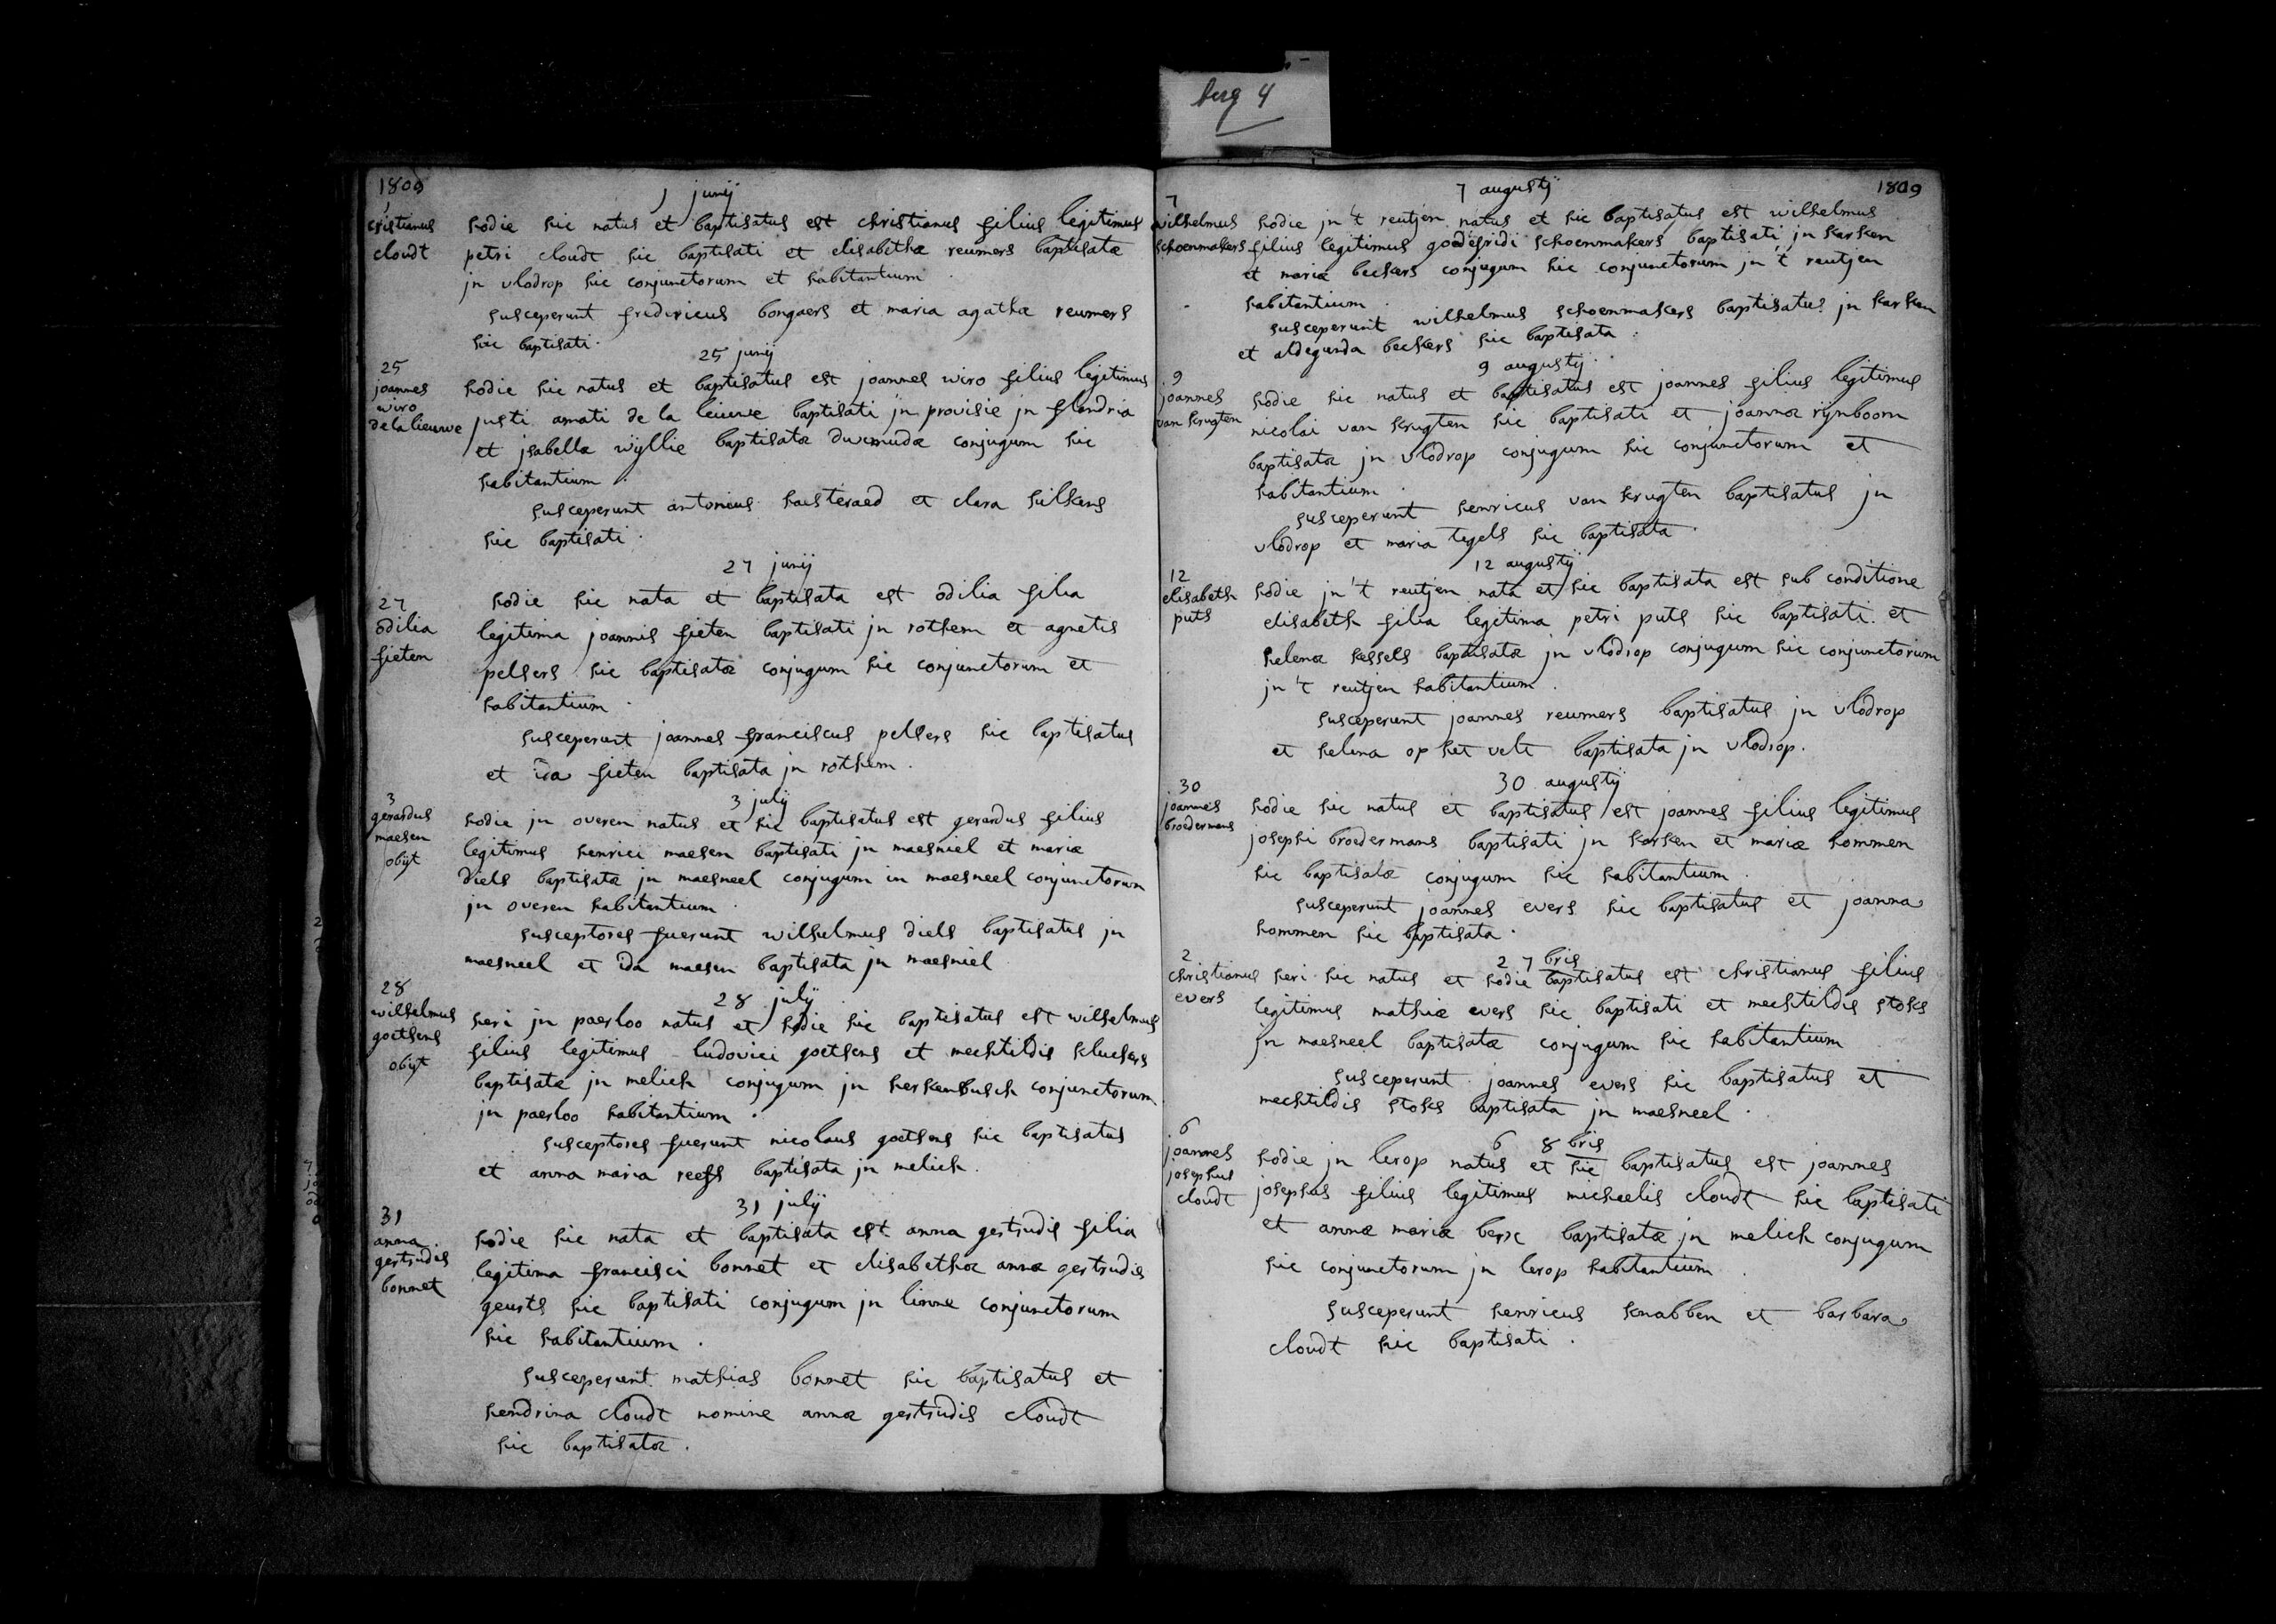 berg 4
1809
1 junij
1
cristianus
cloudt
hodie hic natus et baptisatus est christianus filius legitimus
petri cloudt hic baptisati et elisabethæ reumers baptisatæ
jn vlodrop hic conjunctorum et habitantium
susceperunt fridericus bongaers et maria agatha reumers
hic baptisati.
25 junij
25
joannes
wiro
de la lieuwe
hodie hic natus et baptisatus est joannes wiro filius legitimus
justi amati de la leiuwe baptisati jn provisie jn flandria
et jsabella wijllie baptisatæ duxmudæ conjugum hic
habitantium.
susceperunt antonius haesteraed et clara hilkens
hic baptisati.
27 junij
27
odilia
fieten
hodie hic nata et baptisata est odilia filia
legitima joannis fieten baptisati jn rothem et agnetis
pelsers hic baptisatæ conjugum hic conjunctorum et
habitantium.
susceperunt joannes franciscus pelsers hic baptisatus
et ida fieten baptisata jn rothem.
3 julij
3
gerardus
maesen
obijt
hodie jn overen natus et hic baptisatus est gerardus filius
legitimus henrici maesen baptisati jn maesniel et mariæ
diels baptisatæ jn maesneel conjugum in maesneel conjunctorum
jn overen habitantium.
susceptores fuerunt wilhelmus diels baptisatus jn
maesneel et ida maesen baptisata jn maesniel
28 julij
28
wilhelmus
goetsens
obijt
heri jn paerloo natus et hodie hic baptisatus est wilhelmus
filius legitimus ludovici goetsens et mechtildis sluesers
baptisatæ jn melich conjugum jn herkenbusch conjunctorum
jn paerloo habitantium.
susceptores fuerunt nicolaus goetsens hic baptisatus
et anna maria reefs baptisata jn melich.
31 julij
31
anna
gertrudis
bonnet
hodie hic nata et baptisata est anna gertrudis filia
legitima francisci bonnet et elisabethæ annæ gertrudis
geurts hic baptisati conjugum jn linne conjunctorum
hic habitantium.
susceperunt mathias bonnet hic baptisatus et
hendrina cloudt nomine annæ gertrudis cloudt
hic baptisatæ.
7 augustij
1809
7
wilhelmus
schoenmakers
hodie jn 't reutjen natus et hic baptisatus est wilhelmus
filius legitimus godefridi schoenmakers baptisati jn karken
et mariæ beckers conjugum hic conjunctorum jn 't reutjen
habitantium.
susceperunt wilhelmus schoenmakers baptisatus jn karken
et aldegunda beckers hic baptisata.
9 augustij
9
joannes
van krugten
hodie hic natus et baptisatus est joannes filius legitimus
nicolai van krugten hic baptisati et joannæ rijnboom
baptisatæ jn vlodrop conjugum hic conjunctorum et
habitantium.
susceperunt henricus van krugten baptisatus jn
vlodrop et maria tegels hic baptisata.
12 augustij
12
elisabeth
puts
hodie jn 't reutjen nata et hic baptisata est sub conditione
elisabeth filia legitima petri puts hic baptisati et
helenæ kessels baptisatæ jn vlodrop conjugum hic conjunctorum
jn 't reutjen habitantium.
susceperunt joannes reumers baptisatus jn vlodrop
et helena op het velt baptisata jn vlodrop.
30 augustij
30
joannes
broedermans
hodie hic natus et baptisatus est joannes filius legitimus
josephi broedermans baptisati jn karken et mariæ hommen
hic baptisatæ conjugum hic habitantium.
susceperunt joannes evers hic baptisatus et joanna
hommen hic baptisata.
2 7bris
2
christianus
evers
heri hic natus et hodie baptisatus est christianus filius
legitimus mathiæ evers hic baptisati et mechtildis stoks
jn maesneel baptisatæ conjugum hic habitantium
susceperunt joannes evers hic baptisatus et
mechtildis stoks baptisata jn maesneel.
6 8bris
6
joannes
josephus
cloudt
hodie jn lerop natus et hic baptisatus est joannes
josephus filius legitimus michaelis cloudt hic baptisati
et annæ mariæ berx baptisatæ jn melich conjugum
hic conjunctorum jn lerop habitantium.
susceperunt henricus knabben et barbara
cloudt hic baptisati.